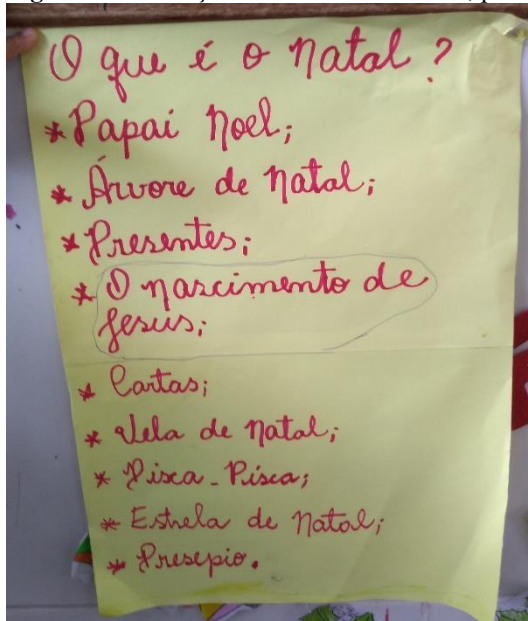 O que é o Natal?
* Papai Noel;
* Árvore de Natal;
* Presentes;
* O nascimento de
Jesus;
* Cartas;
* Vela de Natal;
* Pisca-Pisca;
* Estrela de Natal;
* Presepio.